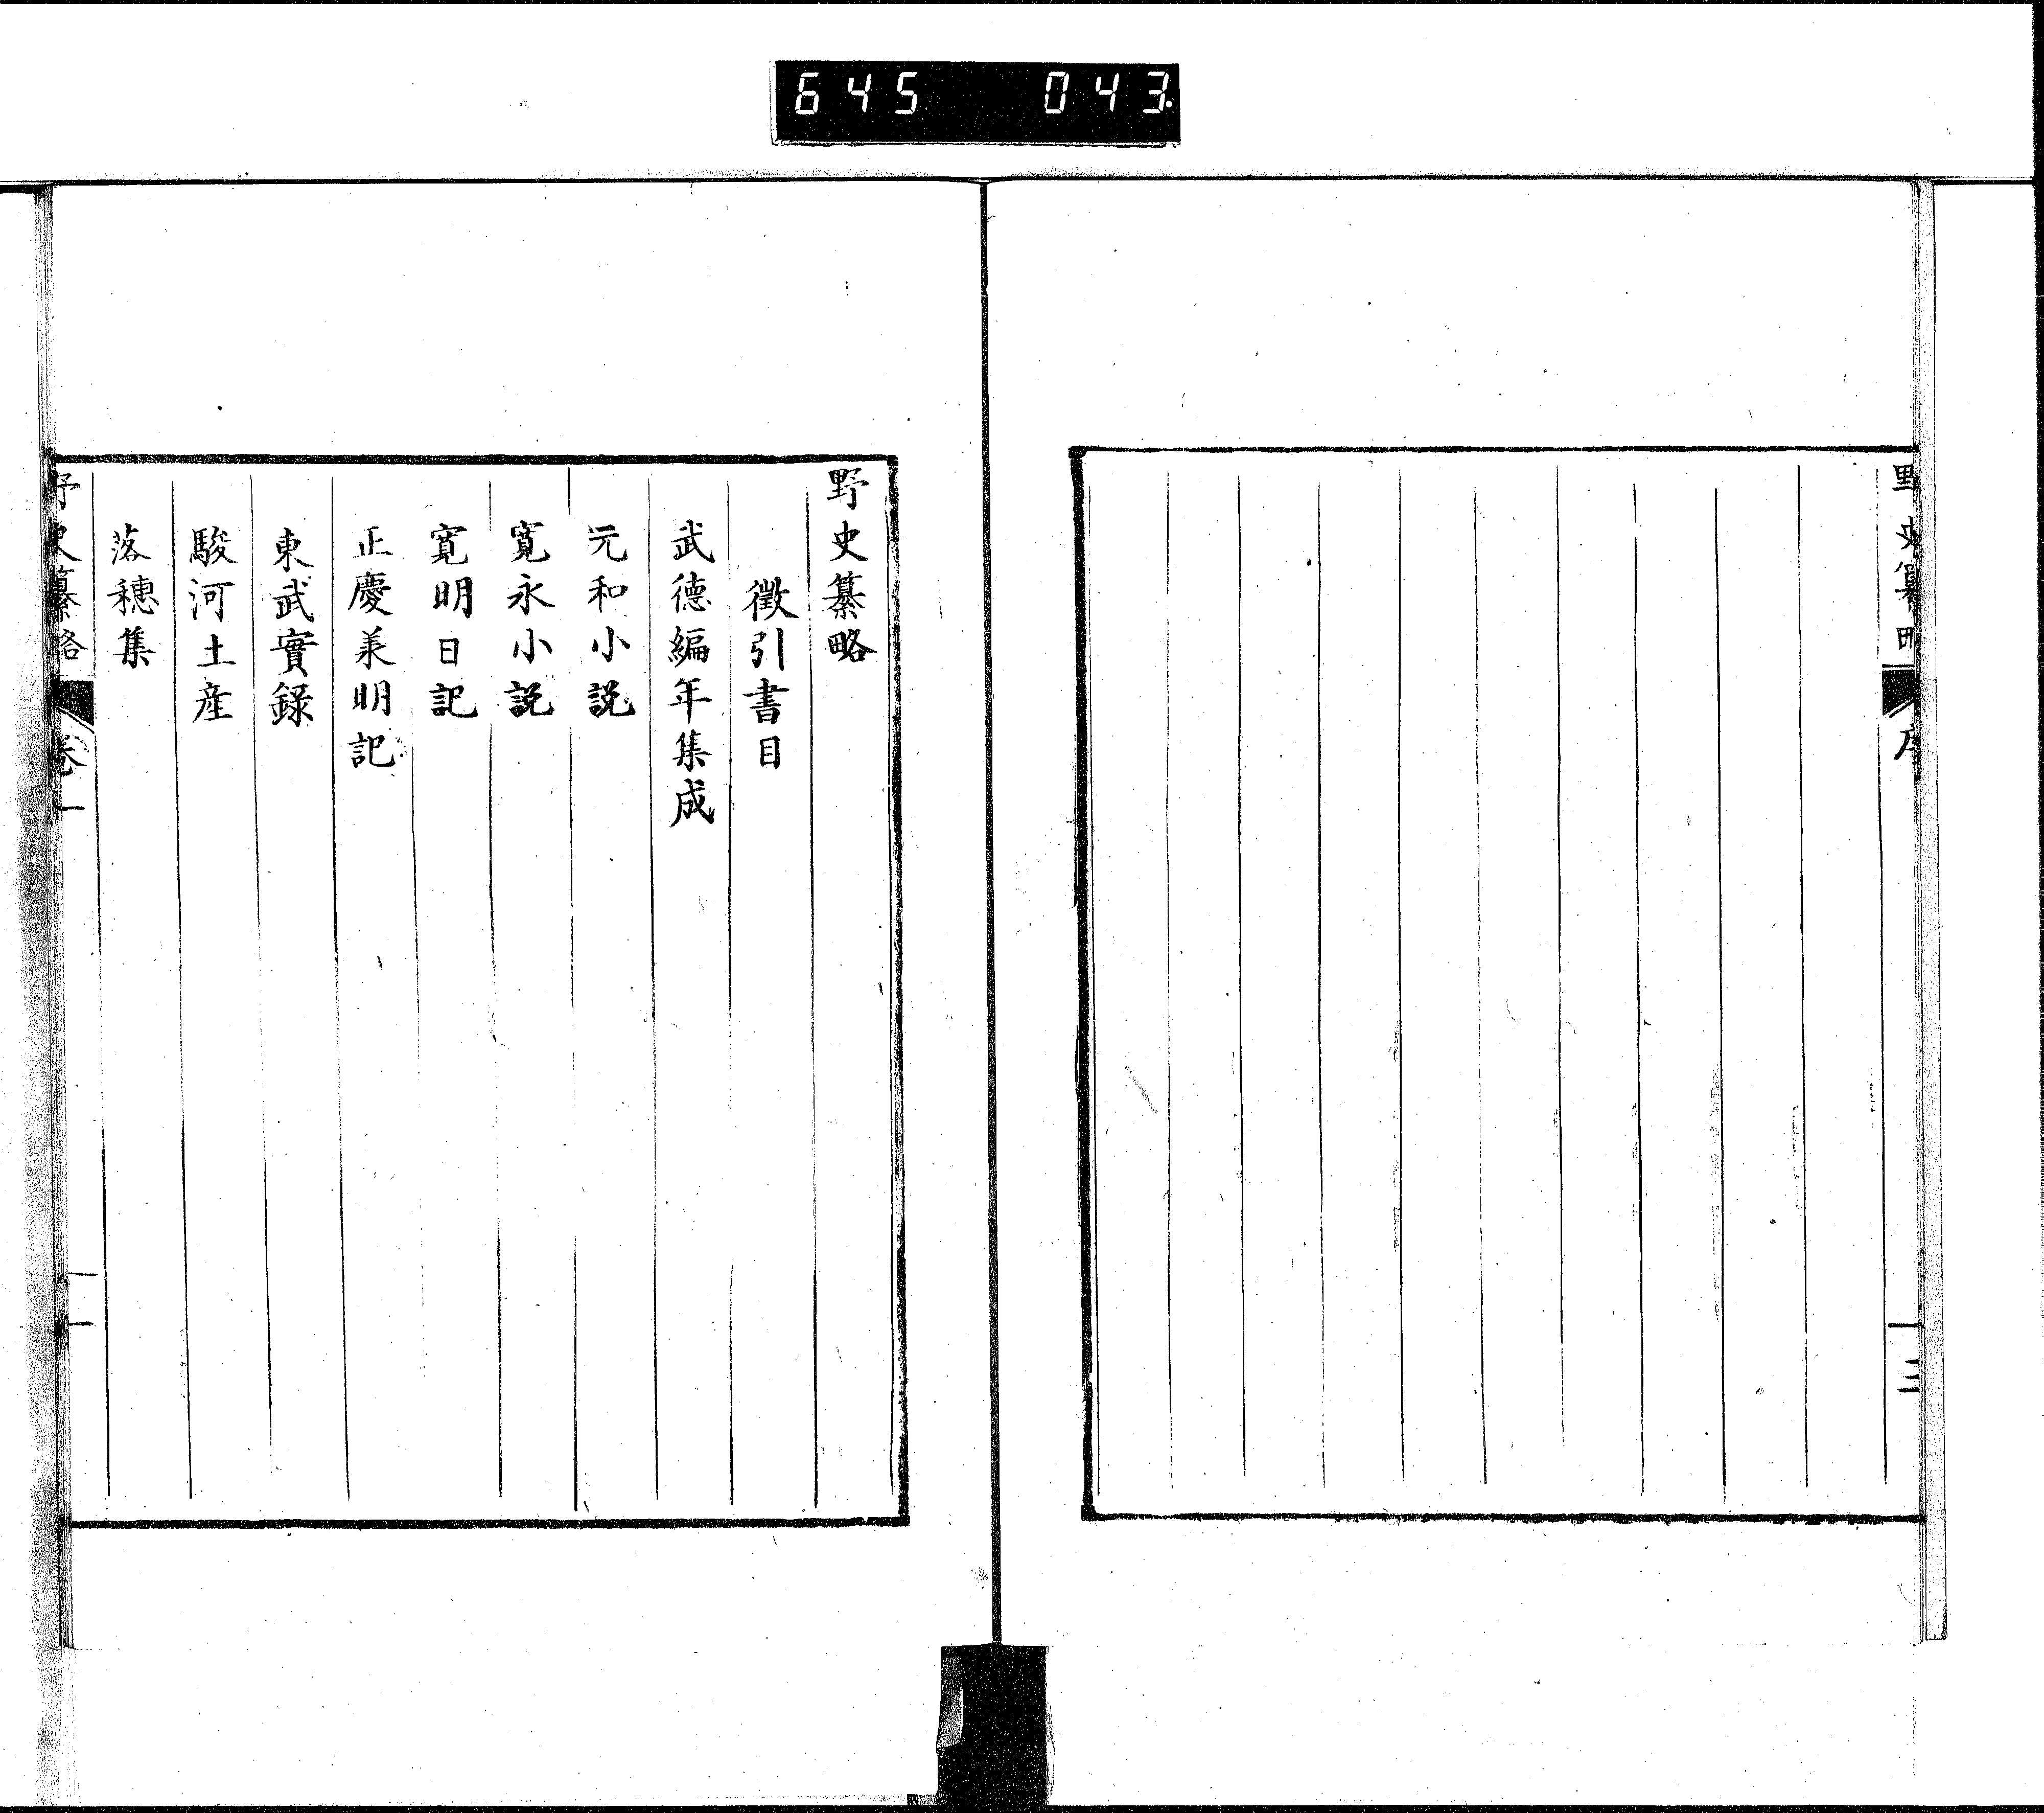 645 043.
野史纂略 序 三
野史纂略
徵引書目
武德編年集成
元和小説
寛永小説
寛明日記
正慶承明記
東武實録
駿河土産
落穗集
野史纂略 卷一 一